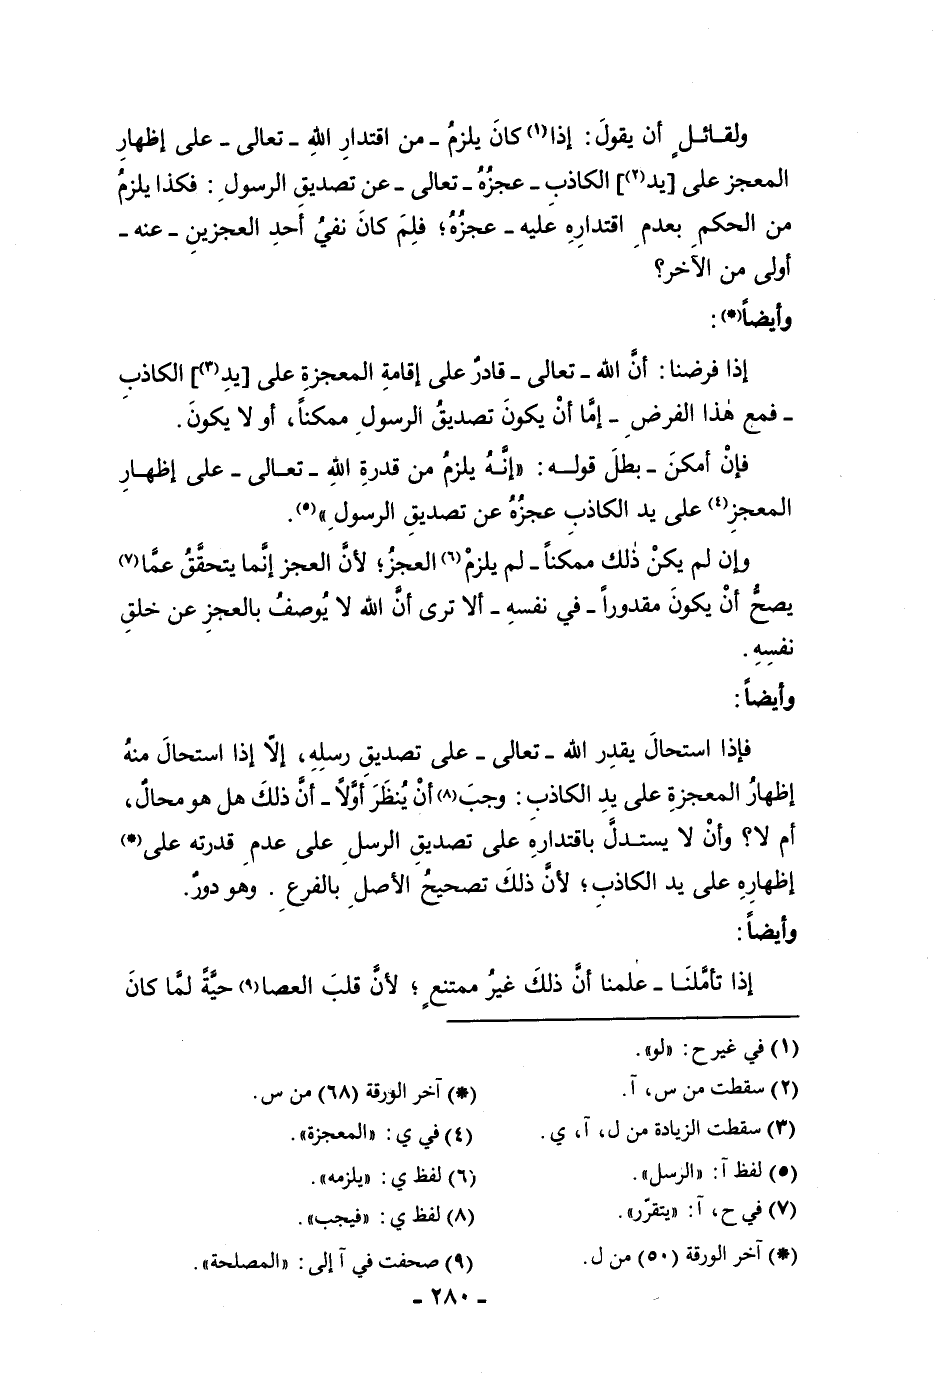 ولقائلٍ أن يقولَ: إذا(١) كانَ يلزمُ ـ من اقتدارِ اللهِ ـ تعالى ـ على إظهارِ
المعجز على [يد(٢)] الكاذبِ ـ عجزُهُ ـ تعالى ـ عن تصديقِ الرسولِ: فكذا يلزمُ
من الحكمِ بعدمِ اقتدارِهِ عليه ـ عجزُهُ؛ فلِمَ كانَ نفيُ أحدِ العجزينِ ـ عنه ـ
أولى من الآخر؟
وأيضاً(*):
إذا فرضنا: أنَّ الله ـ تعالى ـ قادرٌ على إقامةِ المعجزةِ على [يدِ(٣)] الكاذبِ
ـ فمع هٰذا الفرضِ ـ إمَّا أنْ يكونَ تصديقُ الرسولِ ممكناً، أو لا يكونَ.
فإنْ أمكنَ ـ بطلَ قولـه: «إنَّهُ يلزمُ من قدرةِ اللهِ ـ تعـالى ـ على إظهـارِ
المعجزِ(٤) على يد الكاذبِ عجزُهُ عن تصديقِ الرسولِ»(٥).
وإن لم يكنْ ذٰلك ممكناً ـ لم يلزمْ(٦) العجزُ؛ لأنَّ العجز إنَّما يتحقَّقُ عمَّا(٧)
يصحُّ أنْ يكونَ مقدوراً ـ في نفسهِ ـ ألا ترى أنَّ الله لا يُوصفُ بالعجزِ عن خلقِ
نفسِهِ.
وأيضاً:
فإذا استحالَ يقدِر الله ـ تعالى ـ على تصديقِ رسلِهِ، إلَّا إذا استحالَ منهُ
إظهارُ المعجزةِ على يدِ الكاذبِ: وجبَ(٨) أنْ يُنظَرَ أوَّلاً ـ أنَّ ذلكَ هل هو محالٌ،
أم لا؟ وأنْ لا يستـدلَّ باقتدارِهِ على تصديقِ الرسلِ على عدمِ قدرته على(*)
إظهارِهِ على يد الكاذبِ؛ لأنَّ ذلكَ تصحيحُ الأصلِ بالفرعِ. وهو دورٌ.
وأيضاً:
إذا تأمَّلنَـا ـ علمنا أنَّ ذلكَ غيرُ ممتنعٍ؛ لأنَّ قلبَ العصا(٩) حيَّةً لمَّا كانَ
(١) في غير ح: «لو».
(٢) سقطت من س، آ.
(*) آخر الورقة (٦٨) من س.
(٣) سقطت الزيادة من ل، آ، ي.
(٤) في ي: «المعجزة».
(٥) لفظ آ: «الرسل».
(٦) لفظ ي: «يلزمه».
(٧) في ح، آ: «يتقرّر».
(٨) لفظ ي: «فيجب».
(*) آخر الورقة (٥٠) من ل.
(٩) صحفت في آ إلى: «المصلحة».
ـ ٢٨٠ ـ